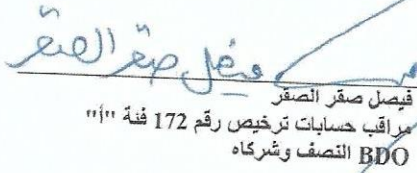 فيصل صقر الصقر
فيصل صقر الصقر
مراقب حسابات ترخيص رقم 172 فئة "أ"
BDO النصف وشركاه